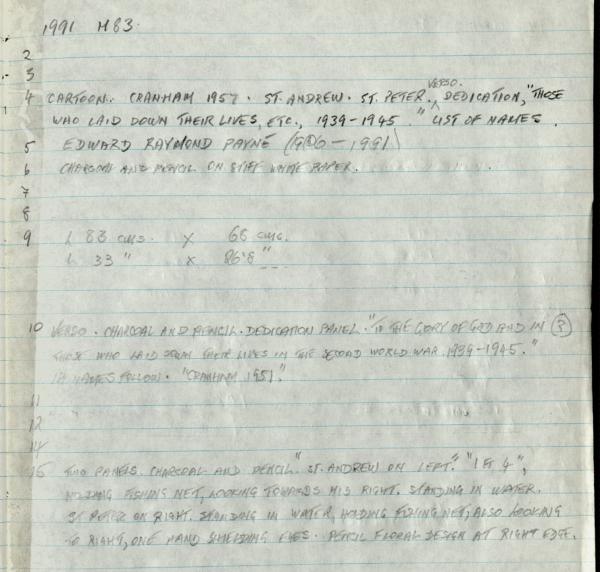 1991 H83.
2
3
VERSO.
4 CARTOON. CRANHAM 1957. ST. ANDREW. ST. PETER. ^ DEDICATION, "THOSE
WHO LAID DOWN THEIR LIVES, ETC., 1939-1945." LIST OF NAMES.
5 EDWARD RAYMOND PAYNE (1906-1991)
6 CHARCOAL AND PENCIL ON STIFF WHITE PAPER.
7
8
9 h 83 cms. x 68 cms.
h 33 " x 26.8 "
10 VERSO. CHARCOAL AND PENCIL. DEDICATION PANEL. "TO THE GLORY OF GOD AND IN ?
THOSE WHO LAID DOWN THEIR LIVES IN THE SECOND WORLD WAR 1939-1945."
NAMES FOLLOW. "CRANHAM 1951."
11
12
14
15 TWO PANELS. CHARCOAL AND PENCIL. "ST. ANDREW ON LEFT." "1 FT 4",
HOLDING FISHING NET, LOOKING TOWARDS HIS RIGHT. STANDING IN WATER.
ST PETER ON RIGHT. STANDING IN WATER, HOLDING FISHING NET, ALSO LOOKING
TO RIGHT, ONE HAND SHIELDING EYES. PENCIL FLORAL DESIGN AT RIGHT EDGE.